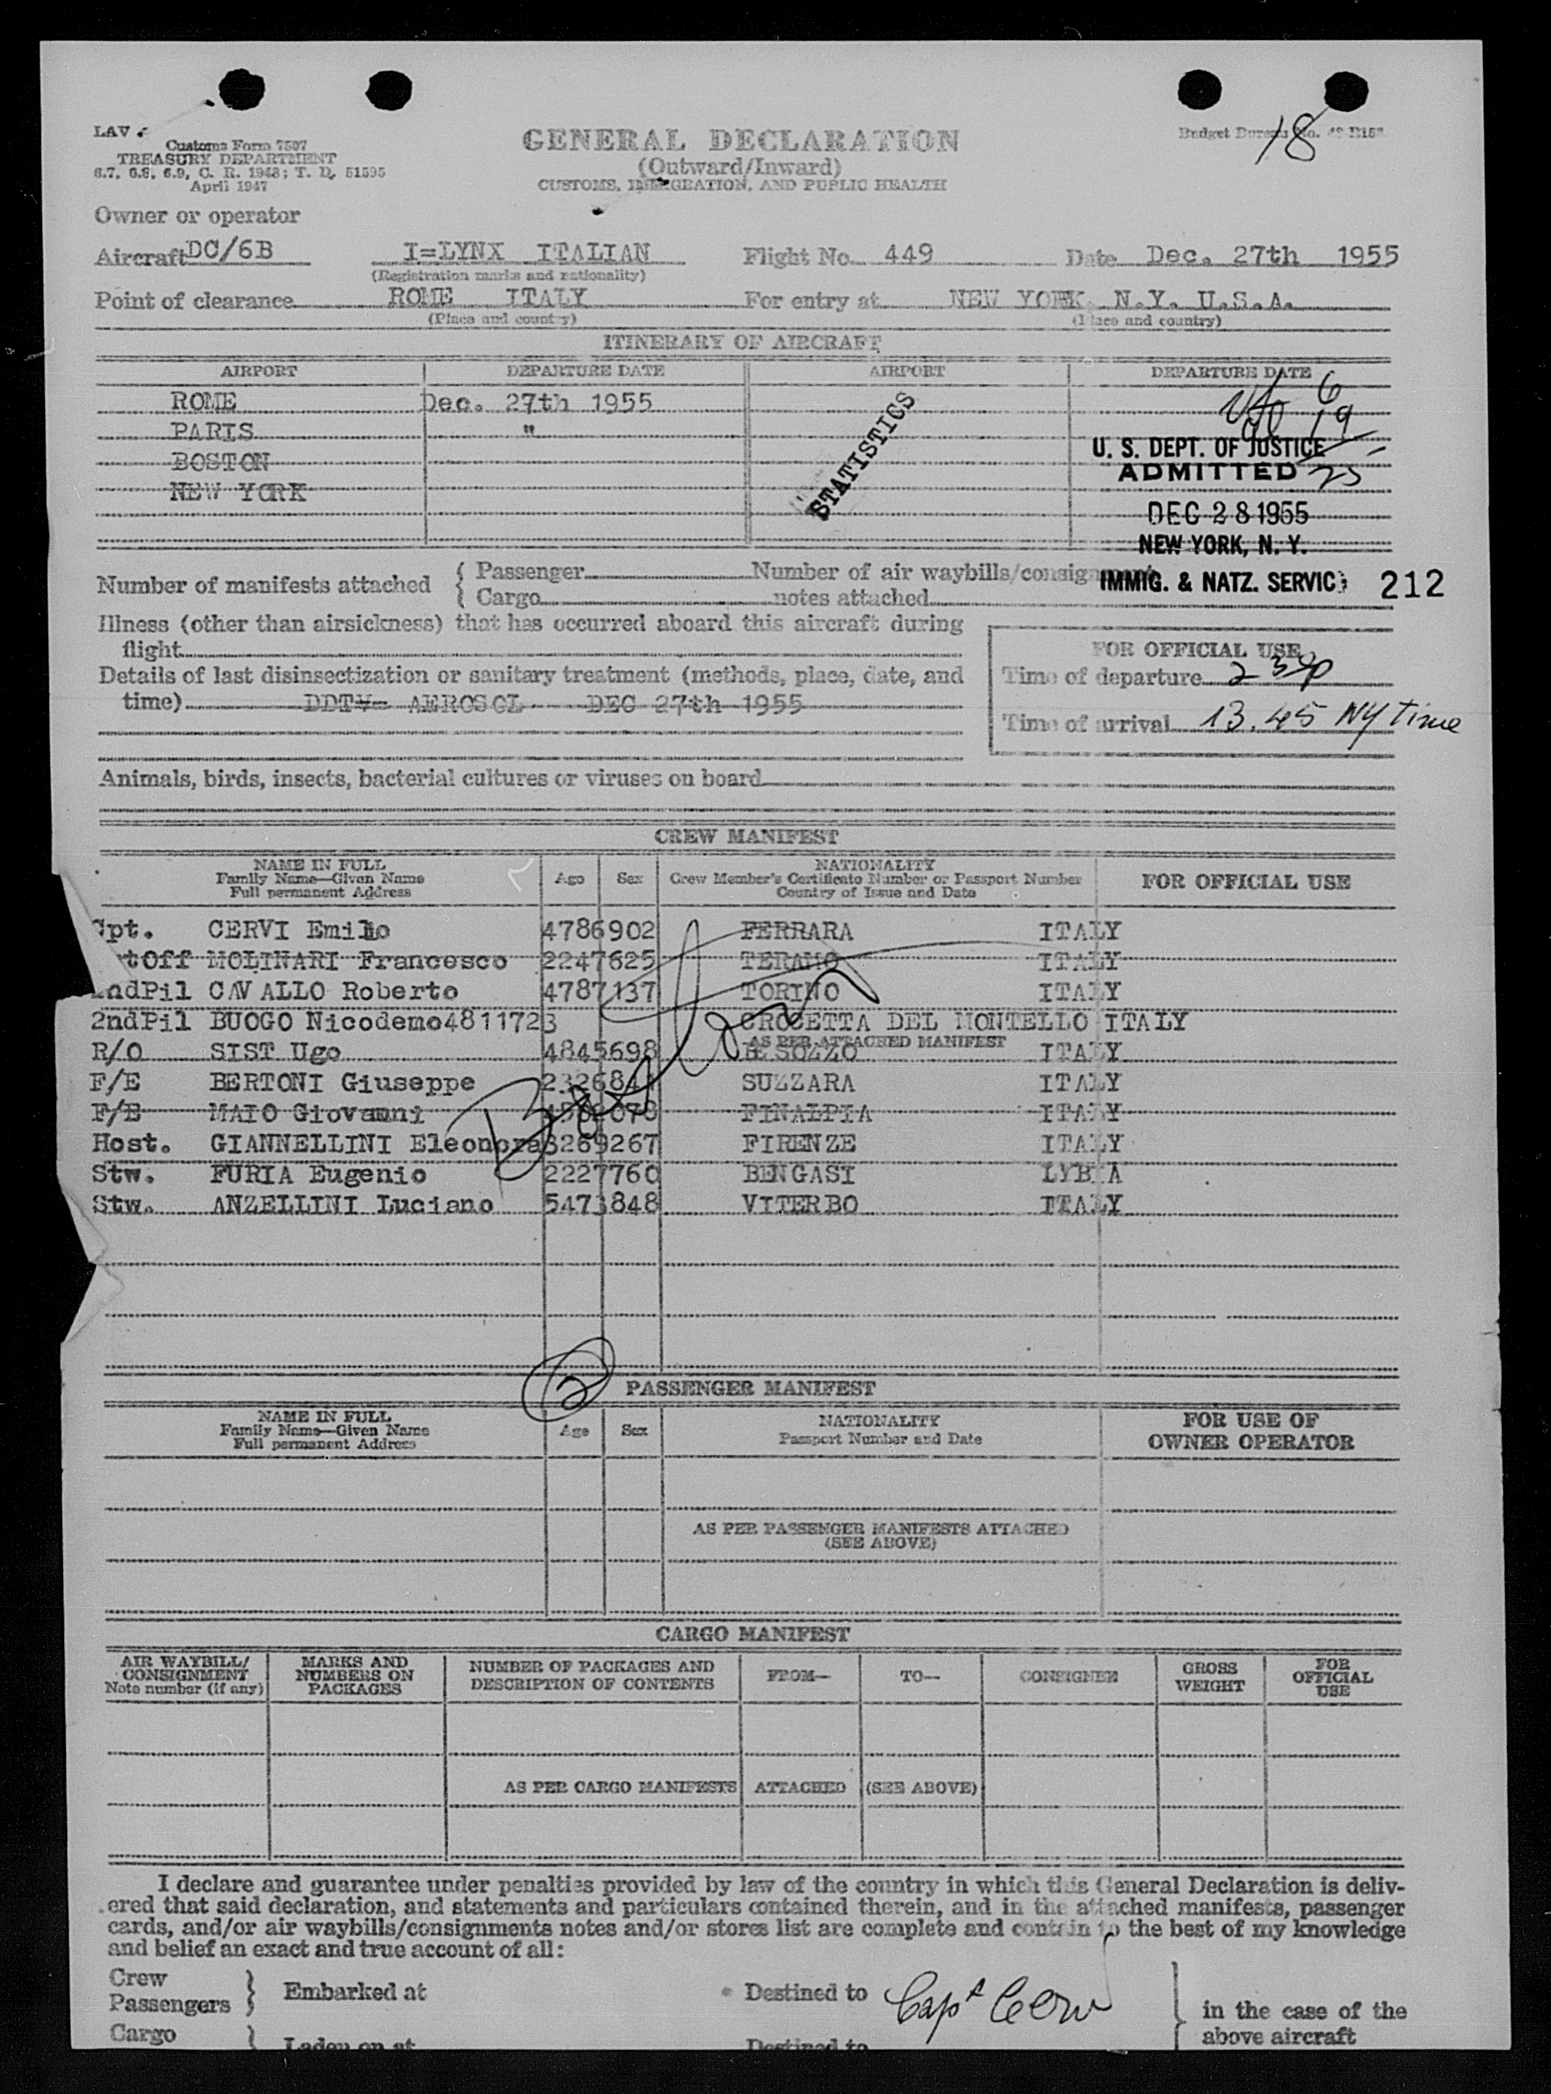 LAV
Customs Form 7507
TREASURY DEPARTMENT
6.7, 6.8, 6.9, C. R. 1943; T. D. 51595
April 1947
GENERAL DECLARATION
(Outward/Inward)
CUSTOMS, IMMIGRATION, AND PUBLIC HEALTH
Budget Bureau No.
18
Owner or operator
Aircraft DC/6B I=LYNX ITALIAN Flight No. 449 Date Dec. 27th 1955
(Registration marks and nationality)
Point of clearance ROME ITALY For entry at NEW YORK N.Y. U.S.A.
(Place and country) (Place and country)
ITINERARY OF AIRCRAFT
AIRPORT DEPARTURE DATE AIRPORT DEPARTURE DATE
ROME Dec. 27th 1955
PARIS "
BOSTON
NEW YORK
STATISTICS
6
19
25
U. S. DEPT. OF JUSTICE
ADMITTED
DEC 28 1955
NEW YORK, N. Y.
IMMIG. & NATZ. SERVIC 212
Number of manifests attached { Passenger Number of air waybills/consignment
Cargo notes attached
Illness (other than airsickness) that has occurred aboard this aircraft during
flight
Details of last disinsectization or sanitary treatment (methods, place, date, and
time) DDT AEROSOL DEC 27th 1955
FOR OFFICIAL USE
Time of departure
Time of arrival 13.45 NY Time
Animals, birds, insects, bacterial cultures or viruses on board
CREW MANIFEST
NAME IN FULL
Family Name—Given Name
Full permanent Address
Age Sex
NATIONALITY
Crew Member's Certificate Number or Passport Number
Country of Issue and Date
FOR OFFICIAL USE
Cpt. CERVI Emilio 4786902 FERRARA ITALY
tOff MOLINARI Francesco 2247625 TERAMO ITALY
ndPil CAVALLO Roberto 4787137 TORINO ITALY
2ndPil BUOGO Nicodemo 4811723 CROCETTA DEL MONTELLO ITALY
AS PER ATTACHED MANIFEST
R/O SIST Ugo 4845698 ITALY
F/E BERTONI Giuseppe SUZZARA ITALY
F/E MAIO Giovanni FINALPIA ITALY
Host. GIANNELLINI Eleonora 3269267 FIRENZE ITALY
Stw. FURIA Eugenio 2227760 BENGASI LYBIA
Stw. ANZELLINI Luciano 5473848 VITERBO ITALY
Boston
2
PASSENGER MANIFEST
NAME IN FULL
Family Name—Given Name
Full permanent Address
Age Sex
NATIONALITY
Passport Number and Date
FOR USE OF
OWNER OPERATOR
AS PER PASSENGER MANIFESTS ATTACHED
(SEE ABOVE)
CARGO MANIFEST
AIR WAYBILL/
CONSIGNMENT
Note number (if any)
MARKS AND
NUMBERS ON
PACKAGES
NUMBER OF PACKAGES AND
DESCRIPTION OF CONTENTS
FROM—
TO—
CONSIGNEE
GROSS
WEIGHT
FOR
OFFICIAL
USE
AS PER CARGO MANIFESTS ATTACHED (SEE ABOVE)
I declare and guarantee under penalties provided by law of the country in which this General Declaration is deliv-
ered that said declaration, and statements and particulars contained therein, and in the attached manifests, passenger
cards, and/or air waybills/consignments notes and/or stores list are complete and contain to the best of my knowledge
and belief an exact and true account of all:
Crew
Passengers } Embarked at Destined to Capt Cervi
in the case of the
above aircraft
Cargo
Laden on at Destined to